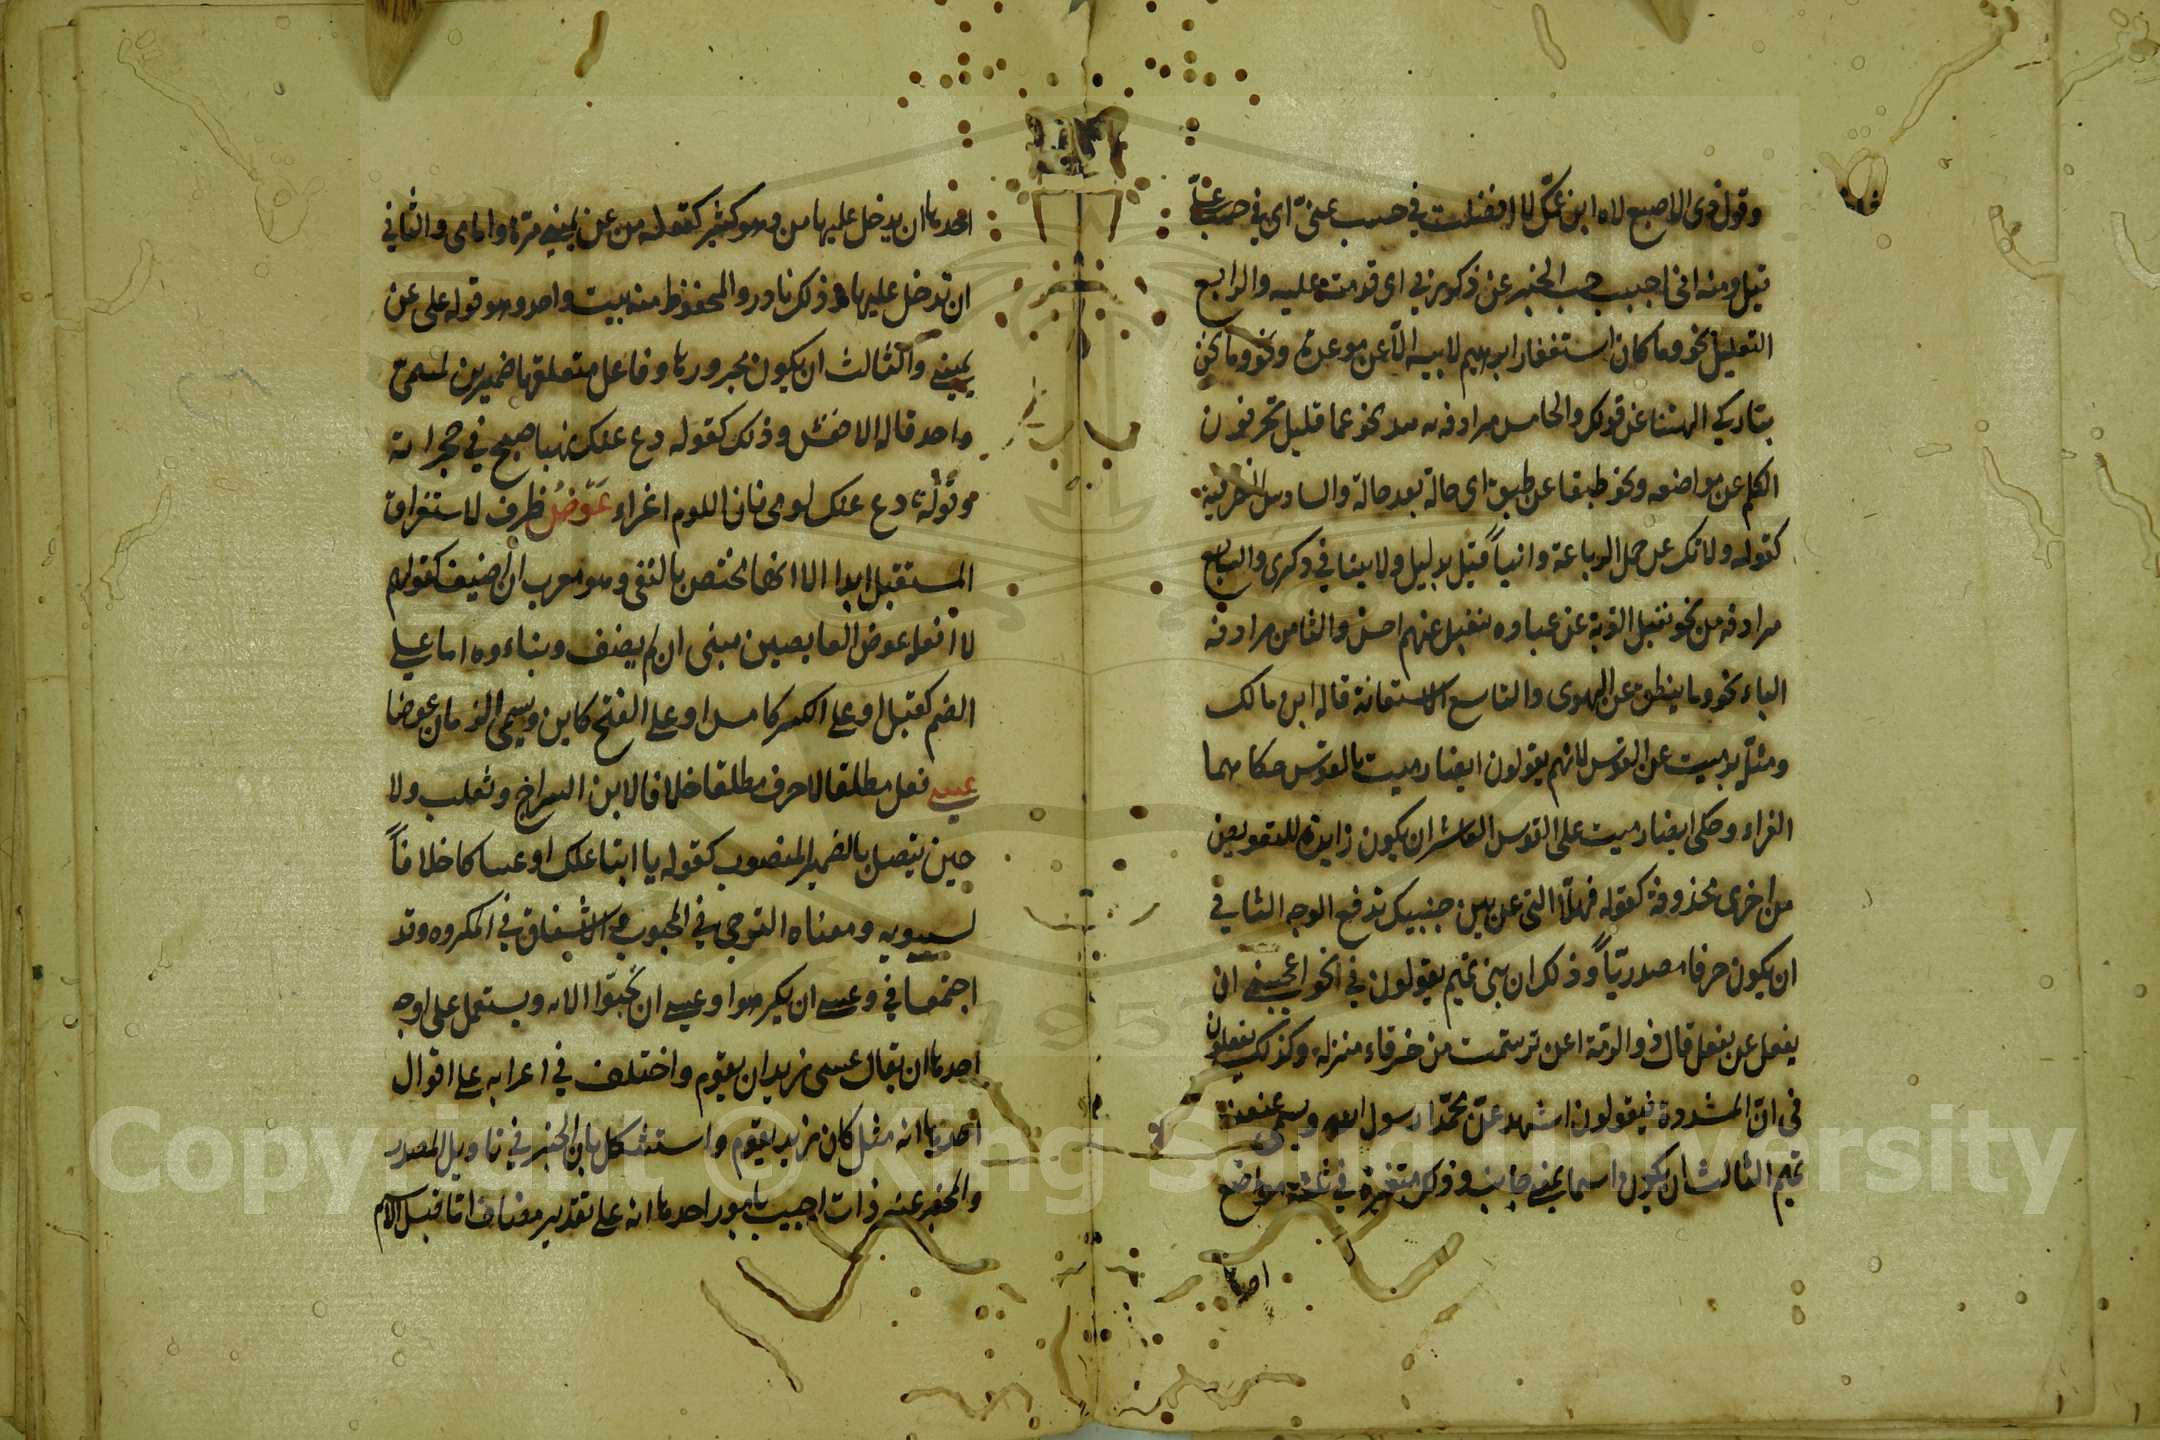 وقول ذى الاصبع لاه ابن عمك لا افضلت في حسب عنى اى في حسب علىّ
قيل ومنه انى احببت حب الخير عن ذكر ربي اى قدمته عليه والرابع
التعليل نحو وما كان استغفار ابرهيم لابيه الا عن موعدة ونحو وما نحن
بتاركي الهتنا عن قولك والخامس مرادفه بعد نحو عما قليل يحرفون
الكلم عن مواضعه ونحو طبقا عن طبق اى حالة بعد حالة والسادس الظرفية
كقوله ولا تك عن حمل الرباعة وانياً قيل بدليل ولا تنيا في ذكرى والسابع
مرادفه من نحو نقبل التوبة عن عباده نتقبل عنهم احسن والثامن مرادفه
الباء نحو وما ينطق عن الهوى والتاسع الاستعانة قاله ابن مالك
ومثله برميت عن القوس لانهم يقولون ايضا رميت بالقوس حكاهما
الفراء وحكى ايضا رميت على القوس العاشر ان يكون زايدة للتعويض
من اخرى محذوفة كقوله فهلا التى عن بين جنبيك تدفع الوجه الثاني
ان يكون حرفا مصدريّاً وذلك ان بنى تميم يقولون في نحو اعجبنى ان
يفعل عن يفعل قال ذو الرمة اعن ترسمت من خرقاء منزلة وكذلك يفعلون
في انّ المشددة فيقولون اشهد عنّ محمّدا رسول الله ويسمى عنعنة
تميم الثالث ان يكون اسما بمعنى جانب وذلك متغيرة في ثلثة مواضع
احدها
احدها ان يدخل عليها من وهو كثير كقوله من عن يمينى مرّة وامامى والثاني
ان تدخل عليها على وذلك نادر والمحفوظ منه بيت واحد وهو قوله على عن
يمينى والثالث ان يكون مجرورها وفاعل متعلقها ضميرين لمسمى
واحد قاله الاخفش وذلك كقوله دع عنك نهبا صيح في حجراته
وقوله دع عنك لومى فان اللوم اغراء عَوْضُ ظرف لاستغراق
المستقبل ابدا الا انها مختص بالنفى وهو معرب ان اضيف كقولهم
لا افعله عوض العايضين مبنى ان لم يضف وبناءوه اما على
الضم كقبل او على الكسر كامس او على الفتح كاين ويسمى الزمان عوضا
عسى فعل مطلقا لا حرف مطلقا خلافا لابن السراج وثعلب ولا
حين يتصل بالضمير المنصوب كقوله يا ابتا علك او عساكا خلافاً
لسيبويه ومعناه الترجى في المحبوب والاشفاق في المكروه وقد
اجتمعا في وعسى ان يكرهوا وعسى ان تحبّوا الايه ويستعمل على اوجه
احدها ان يقال عسى زيد ان يقوم واختلف في اعرابه على اقوال
احدها انه مثل كان زيد يقوم واستشكل بان الخبر في تاويل المصدر
والمخبر عنه ذات اجيب بامور احدها انه على تقدير مضاف اما قبل الاسم
Copyright © King Saud University
1957